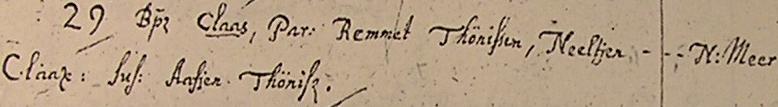 29 Bpz Claas, Par: Remmet Thönissen, Neeltjen --- N: Meer
Claaz: Sus: Aafjen Thönisz.